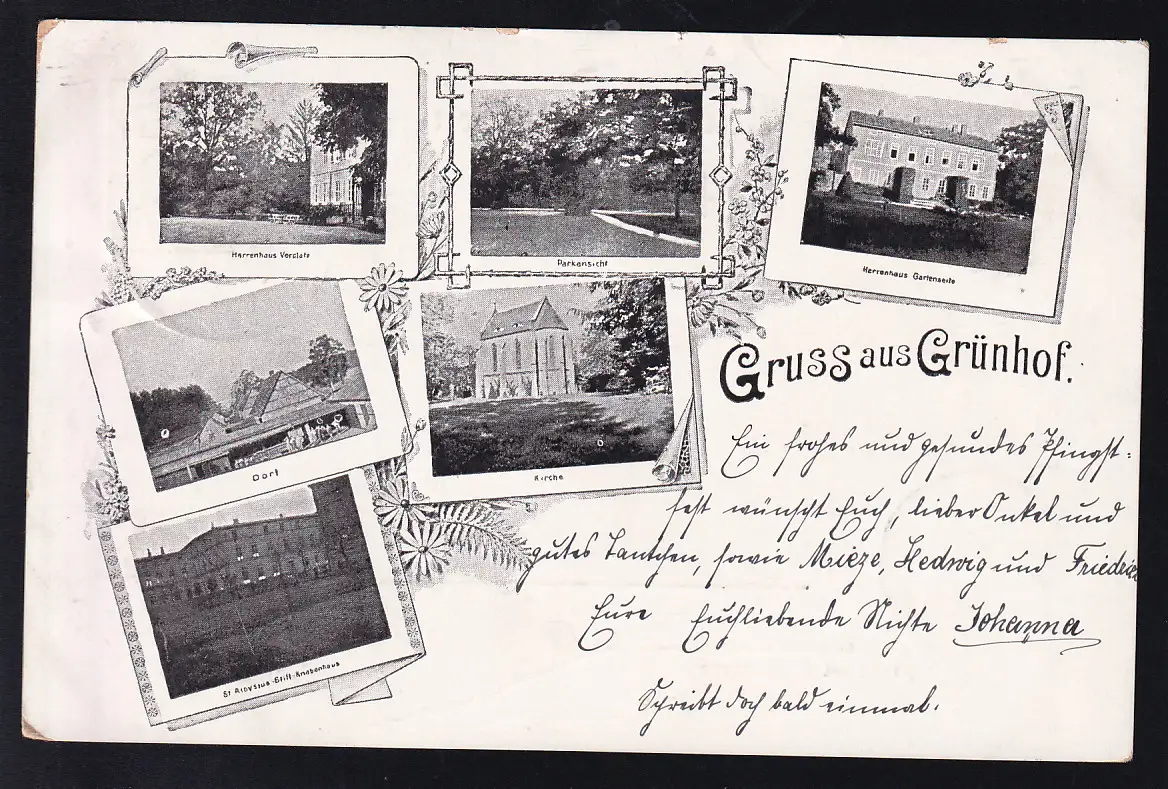 Herrenhaus Vorplatz
Parkansicht
Herrenhaus Gartenseite
Dorf
Kirche
St Aloysius-Stift-Knabenhaus
Gruss aus Grünhof.
Ein frohes und gesundes Pfingst-
fest wünscht Euch, lieber Onkel und
gutes Tantchen, sowie Mieze, Hedwig und
Eure Euchliebende Nichte Johanna
Schreibt doch bald einmal.